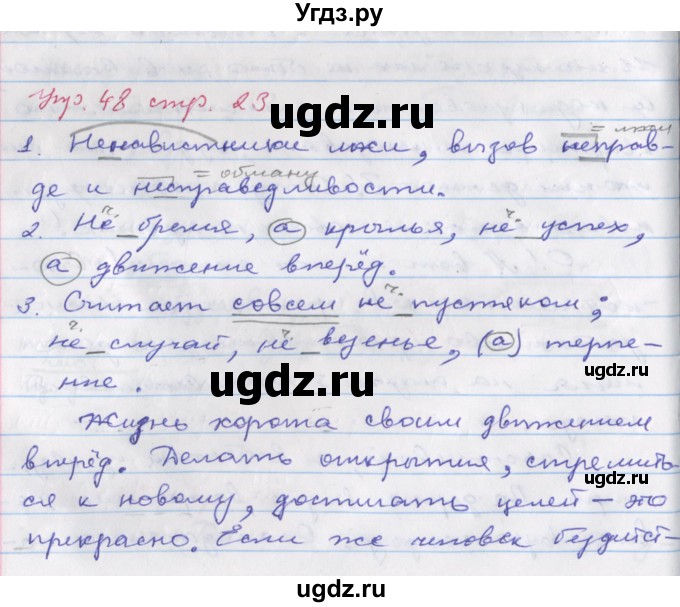 Угдз.ру
Упр. 48 стр. 23
ugdz.ru
1. Ненавистники лжи, вызов неправ-
= лжи
= обману
де и несправедливости.
ч. ч.
2. Не_бремя, а крылья, не_успех,
а движение вперёд.
ч.
3. Считает совсем не_пустяком;
ч. ч.
не_случай, не_везенье, (а) терпе-
ugdz.ru
ugdz.ru
ние.
Жизнь хороша своим движением
вперёд. Делать открытия, стремить-
ся к новому, достигать целей – это
прекрасно. Если же человек бездейст-
ugdz.ru